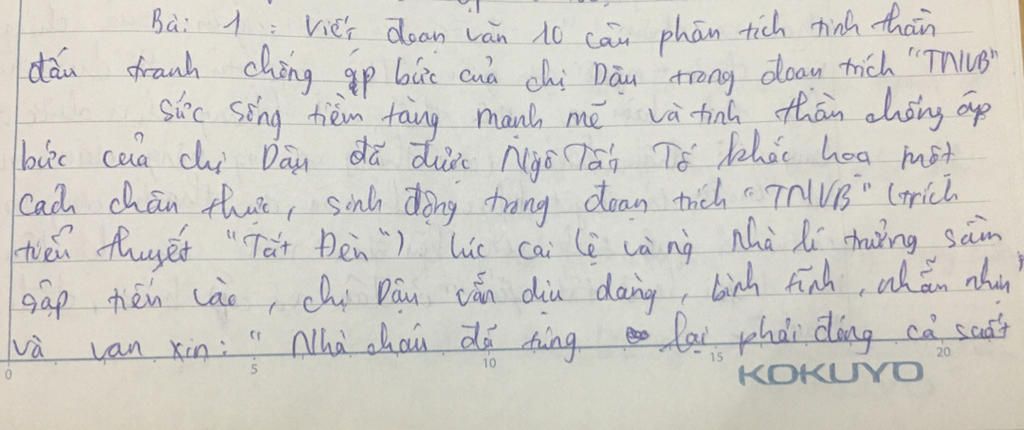 Bài 1 : Viết đoạn văn 10 câu phân tích tinh thần
đấu tranh chống áp bức của chị Dậu trong đoạn trích "TNVB"
Sức sống tiềm tàng mạnh mẽ và tinh thần chống áp
bức của chị Dậu đã được Ngô Tất Tố khắc hoạ một
cách chân thực, sinh động trong đoạn trích "TNVB" (trích
tiểu thuyết "Tắt Đèn") lúc cai lệ và ng nhà lí trưởng sầm
sập tiến vào, chị Dậu vẫn dịu dàng, bình tĩnh, nhẫn nhịn
và van xin: "Nhà cháu đã túng lại phải đóng cả suất
0 5 10 15 20
KOKUYO